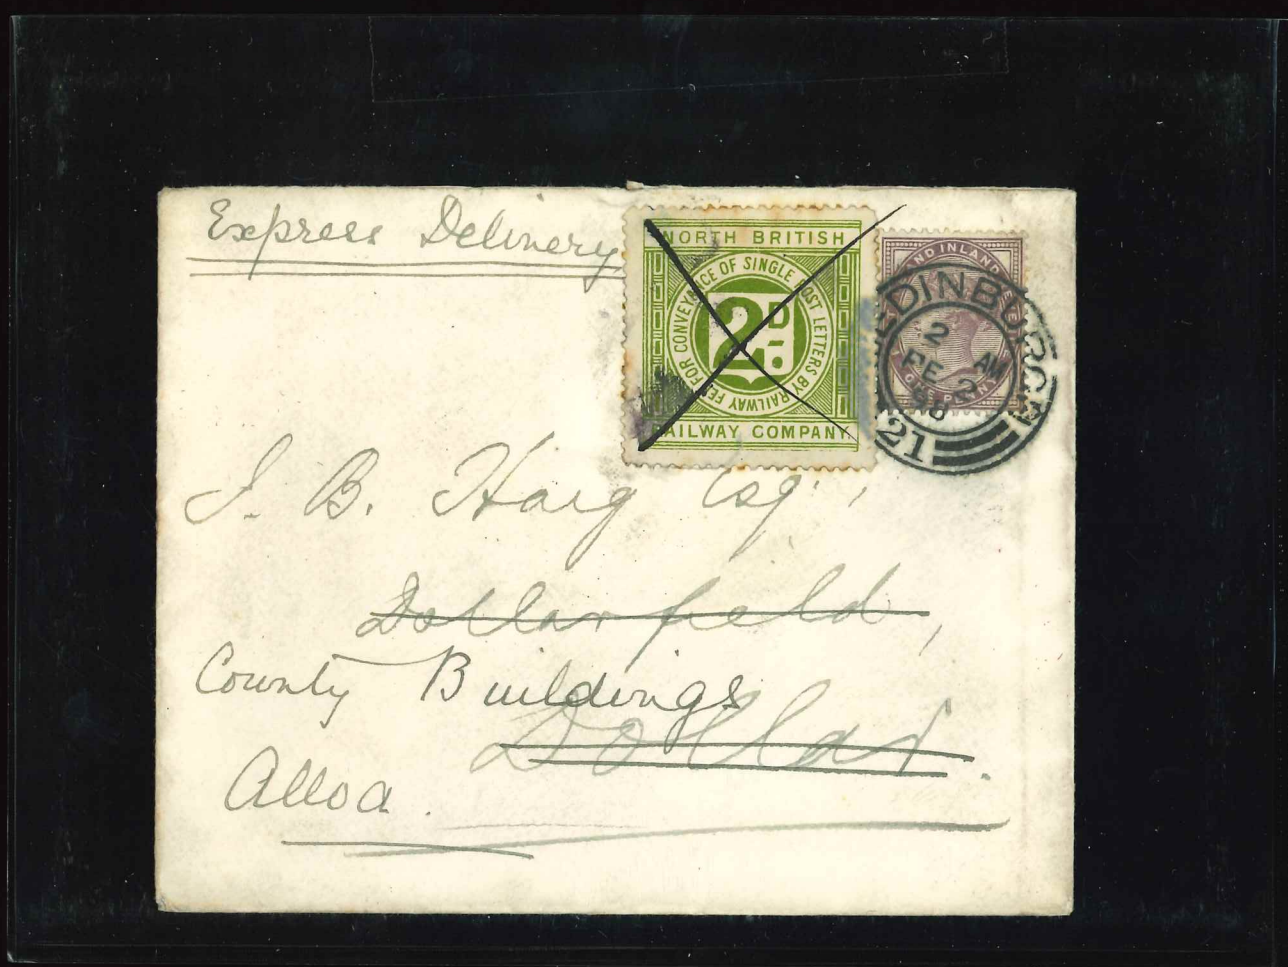 Express Delivery
NORTH BRITISH
FEE FOR CONVEYANCE OF SINGLE POST LETTERS BY RAILWAY
2D.
RAILWAY COMPANY
AND INLAND
ONE PENNY
EDINBURGH
2 AM
FE 2
98
21
J. B. Haig Esq.,
Dollarfield,
County Buildings
Dollar.
Alloa.